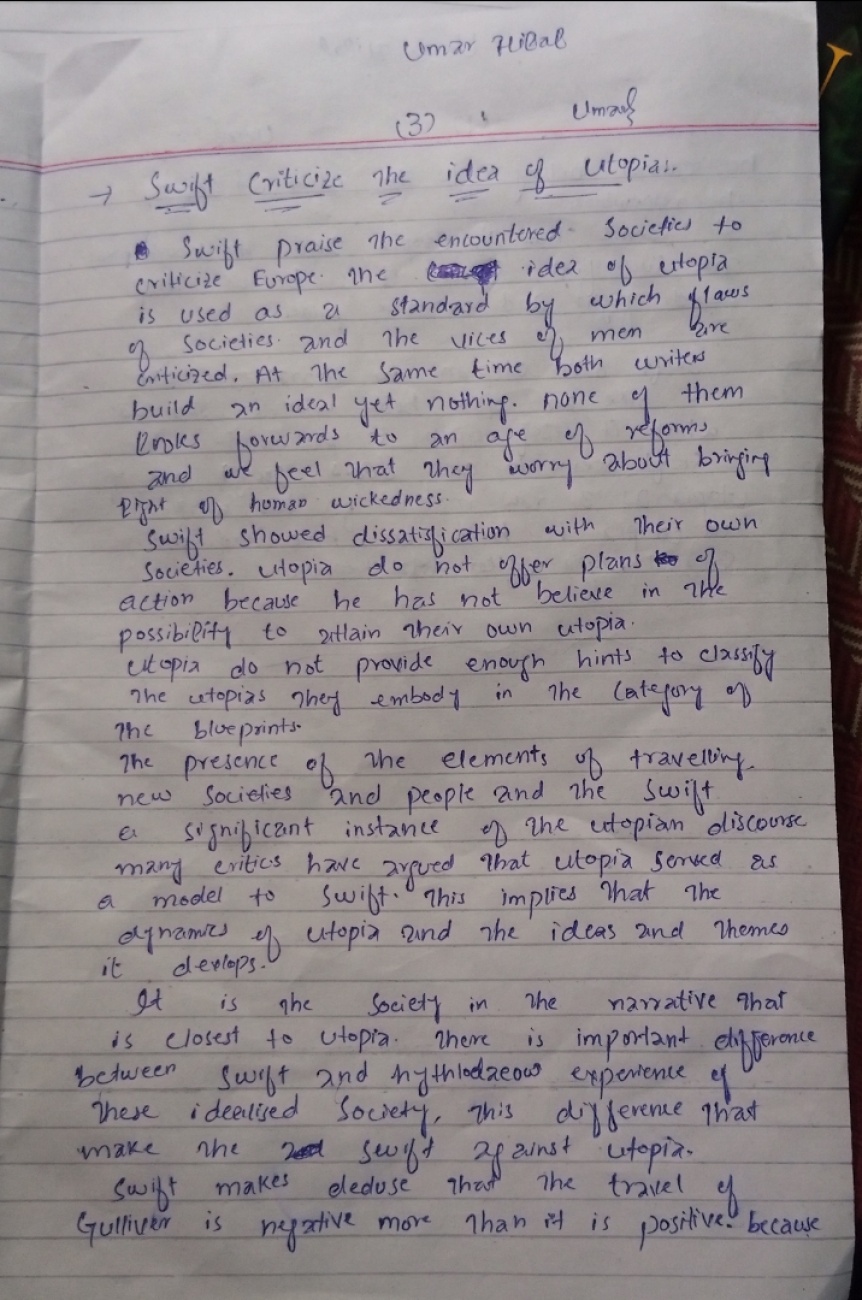 Umar Hilal
(3)
Umar
→ Swift Criticize The idea of Utopias.
Swift praise the encountered Societies to
criticize Europe. The idea of utopia
is used as a standard by which flaws
of Societies and the vices of men are
criticized. At The Same time both writers
build an ideal yet nothing. none of them
looks forwards to an age of reforms
and we feel that they worry about bringing
light of human wickedness.
Swift showed dissatisfication with Their own
Societies. Utopia do not offer plans of
action because he has not believe in the
possibility to attain their own utopia.
Utopia do not provide enough hints to classify
The utopias They embody in The Category of
The blueprints.
The presence of The elements of travelling
new Societies and people and the Swift
a significant instance of the utopian discourse
many critics have argued that utopia served as
a model to Swift. This implies That The
dynamics of utopia and The ideas and Themes
it devlops.
It is The Society in The narrative That
is closest to Utopia. There is important difference
between Swift and hythlodaeow experience of
These ideealised Society, This difference That
make The Swift against utopia.
Swift makes deduse that The travel of
Gulliver is negative more than it is positive. because